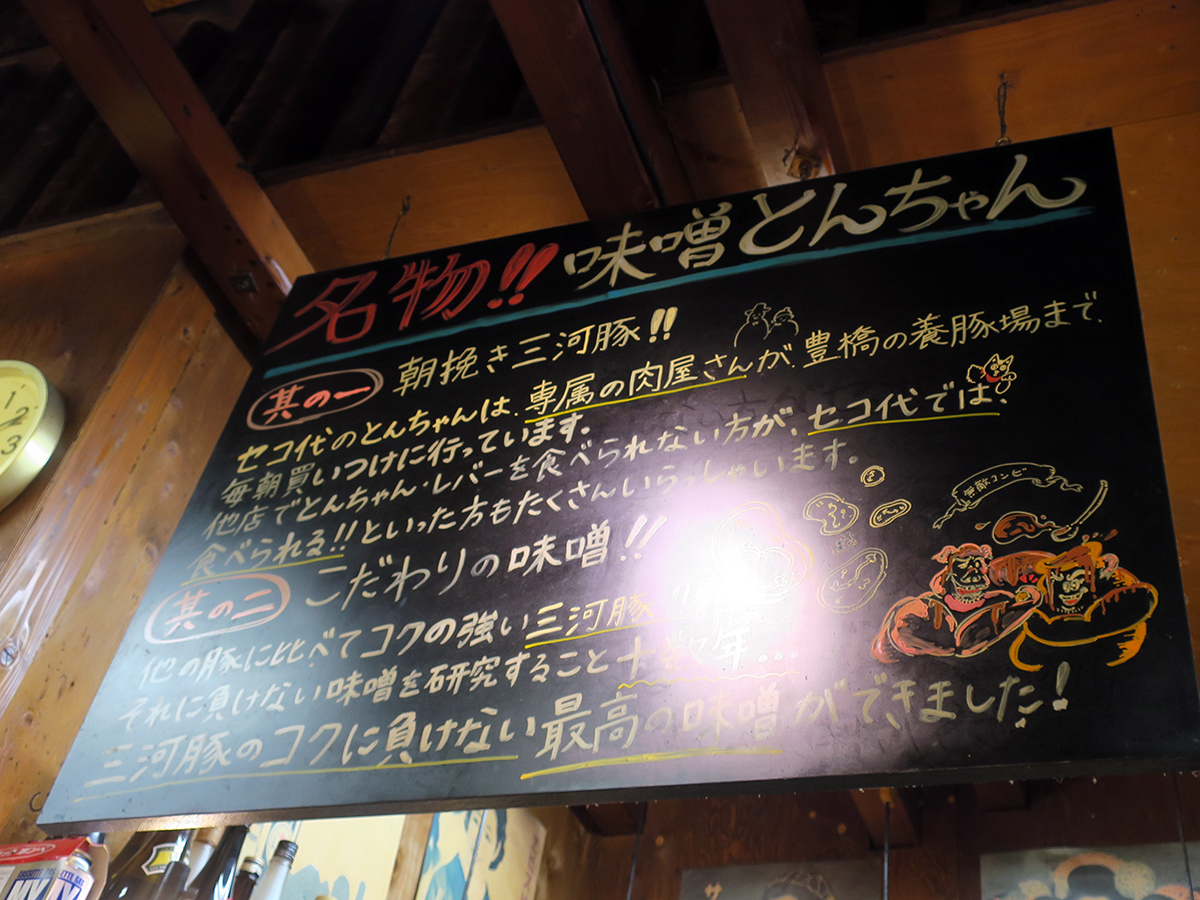 名物!! 味噌とんちゃん
其の一 朝挽き三河豚!!
セコ代のとんちゃんは、専属の肉屋さんが、豊橋の養豚場まで、
毎朝買いつけに行っています。
他店でとんちゃん・レバーを食べられない方が、セコ代では、
食べられる!!といった方もたくさんいらっしゃいます。
其の二 こだわりの味噌!!
他の豚に比べてコクの強い三河豚!!
それに負けない味噌を研究すること十数年…
三河豚のコクに負けない最高の味噌ができました!
無敵コンビ
1
2
3
サ